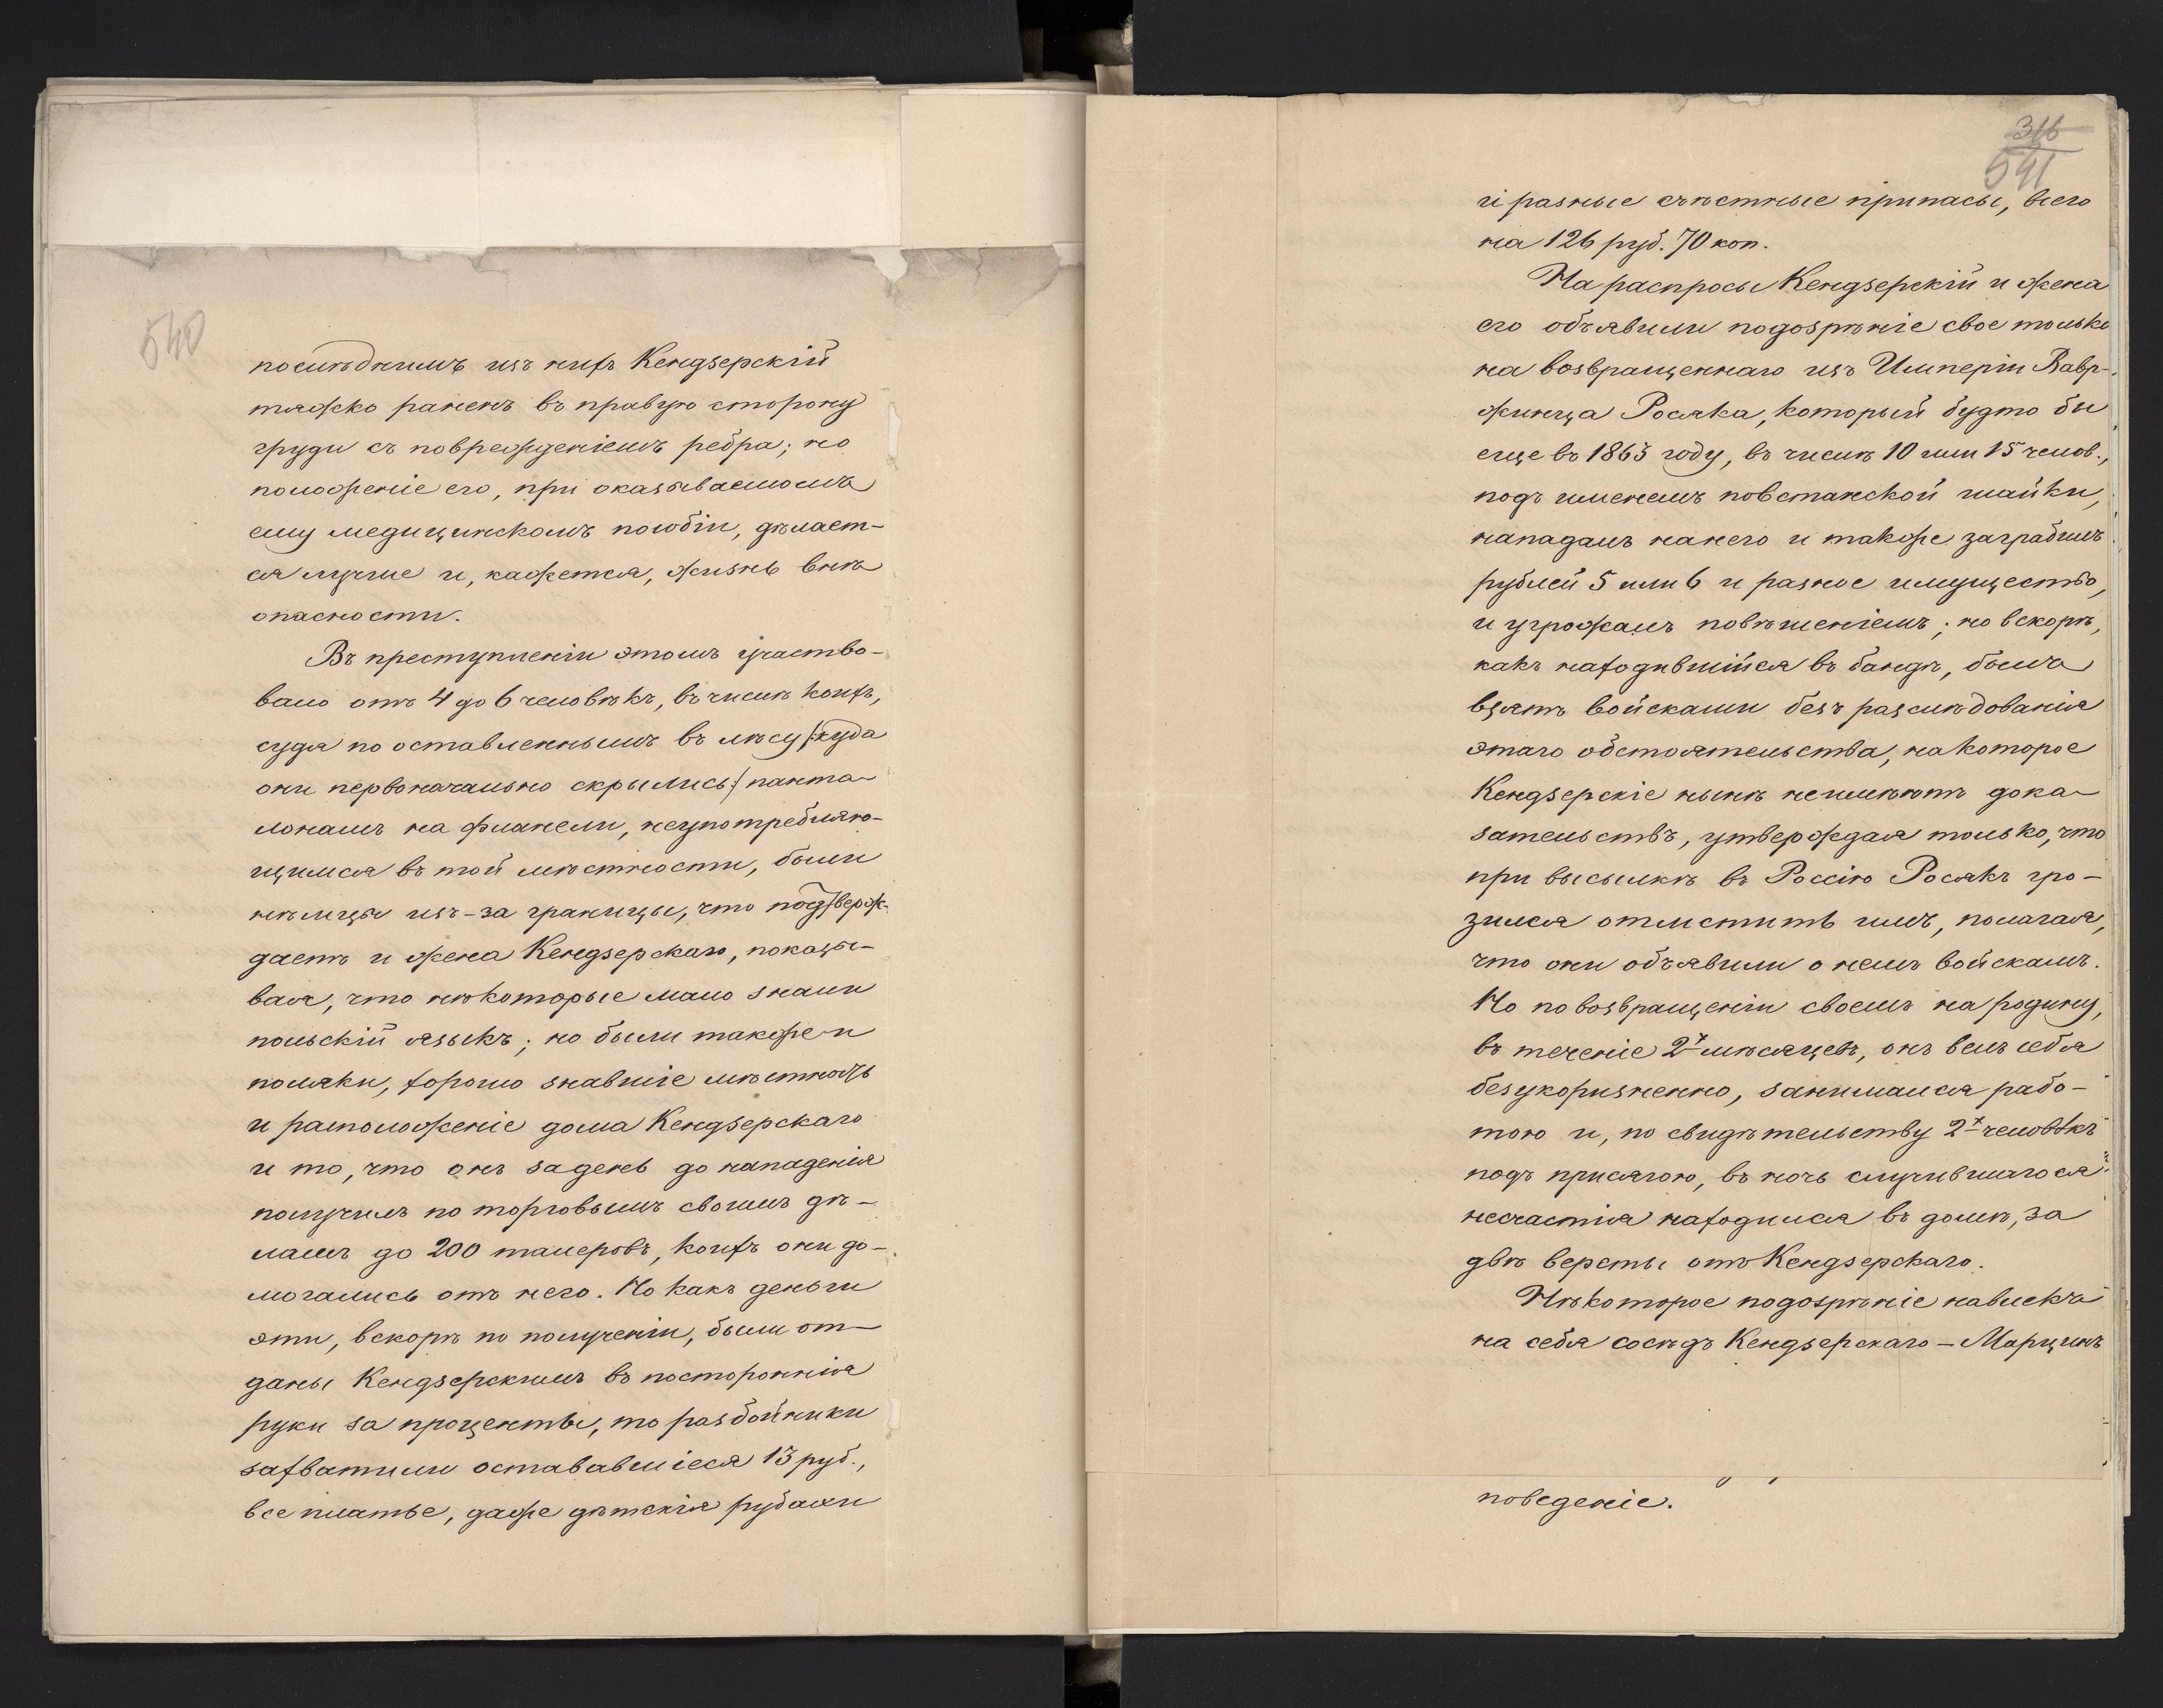 540
послѣднимъ изъ нихъ Кендзерскій
тяжко раненъ въ правую сторону
груди съ поврежденіемъ ребра; но
положеніе его, при оказываемомъ
ему медицинскомъ пособіи, дѣлает-
ся лучше и, кажется, жизнь внѣ
опасности.
Въ преступленіи этомъ участво-
вало отъ 4 до 6 человѣкъ, въ числѣ коихъ,
судя по оставленнымъ въ лѣсу /:куда
они первоначально скрылись:/ панта-
лонамъ на фланели, неупотребляю-
щимся въ той мѣстности, были
нѣмцы изъ-за границы, что подтверж-
даетъ и жена Кендзерскаго, показы-
вая, что нѣкоторые мало знали
польскій языкъ; но были также и
поляки, хорошо знавшіе мѣстность
и расположеніе дома Кендзерскаго
и то, что онъ за день до нападенія
получилъ по торговымъ своимъ дѣ-
ламъ до 200 талеровъ, коихъ они до-
могались отъ него. Но какъ деньги
эти, вскорѣ по полученіи, были от-
даны Кендзерскимъ въ постороннія
руки за проценты, то разбойники
захватили остававшіеся 13 руб.,
все платье, даже дѣтскія рубахи
316
541
и разные съѣстные припасы, всего
на 126 руб. 70 коп.
На распросы Кендзерскій и жена
его объявили подозрѣніе свое только
на возвращеннаго изъ Имперіи Вавр-
жинца Росяка, который будто бы
еще въ 1863 году, въ числѣ 10 или 15 челов.,
подъ именемъ повстанской шайки,
нападалъ на него и также заграбилъ
рублей 5 или 6 и разное имущество,
и угрожалъ повѣшеніемъ; но вскорѣ,
какъ находившійся въ бандѣ, былъ
взятъ войсками безъ разслѣдованія
этаго обстоятельства, на которое
Кендзерскіе нынѣ неимѣютъ дока-
зательствъ, утверждая только, что
при высылкѣ въ Россію Росякъ гро-
зился отмстить имъ, полагая,
что они объявили о немъ войскамъ.
Но по возвращеніи своемъ на родину,
въ теченіе 2х мѣсяцевъ, онъ велъ себя
безукоризненно, занимался рабо-
тою и, по свидѣтельству 2х человѣкъ
подъ присягою, въ ночь случившагося
несчастія находился въ домѣ, за
двѣ версты отъ Кендзерскаго.
Нѣкоторое подозрѣніе навлекъ
на себя сосѣдъ Кендзерскаго – Марцинъ
поведеніе.